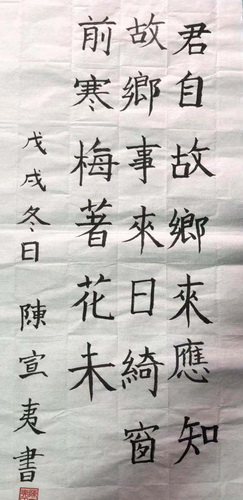 君自故鄉來應知
故鄉事來日綺窗
前寒梅著花未
戊戌冬日 陳宣夷書